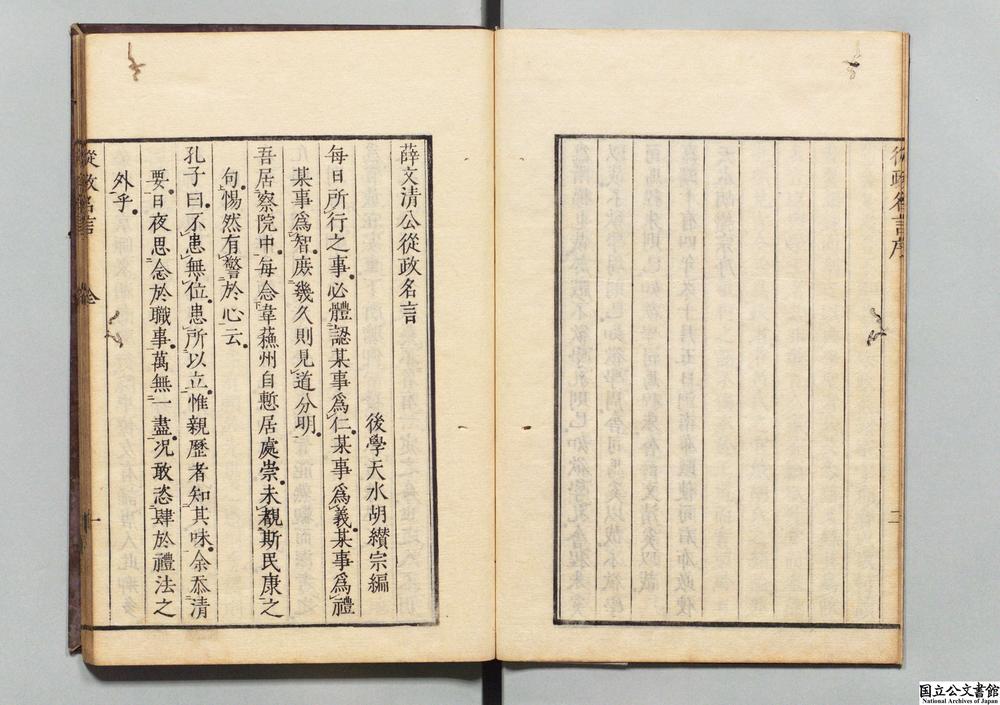 從政名言序
二
薛文清公從政名言
後學天水胡纘宗編
每日所行之事必體認某事爲仁某事爲義某事爲禮
某事爲智庶幾久則見道分明
吾居察院中每念韋蘇州自慙居處崇未覩斯民康之
句惕然有警於心云
孔子曰不患無位患所以立惟親歷者知其味余忝清
要日夜思念於職事萬無一盡況敢恣肆於禮法之
外乎
從政名言
全
一
国立公文書館
National Archives of Japan